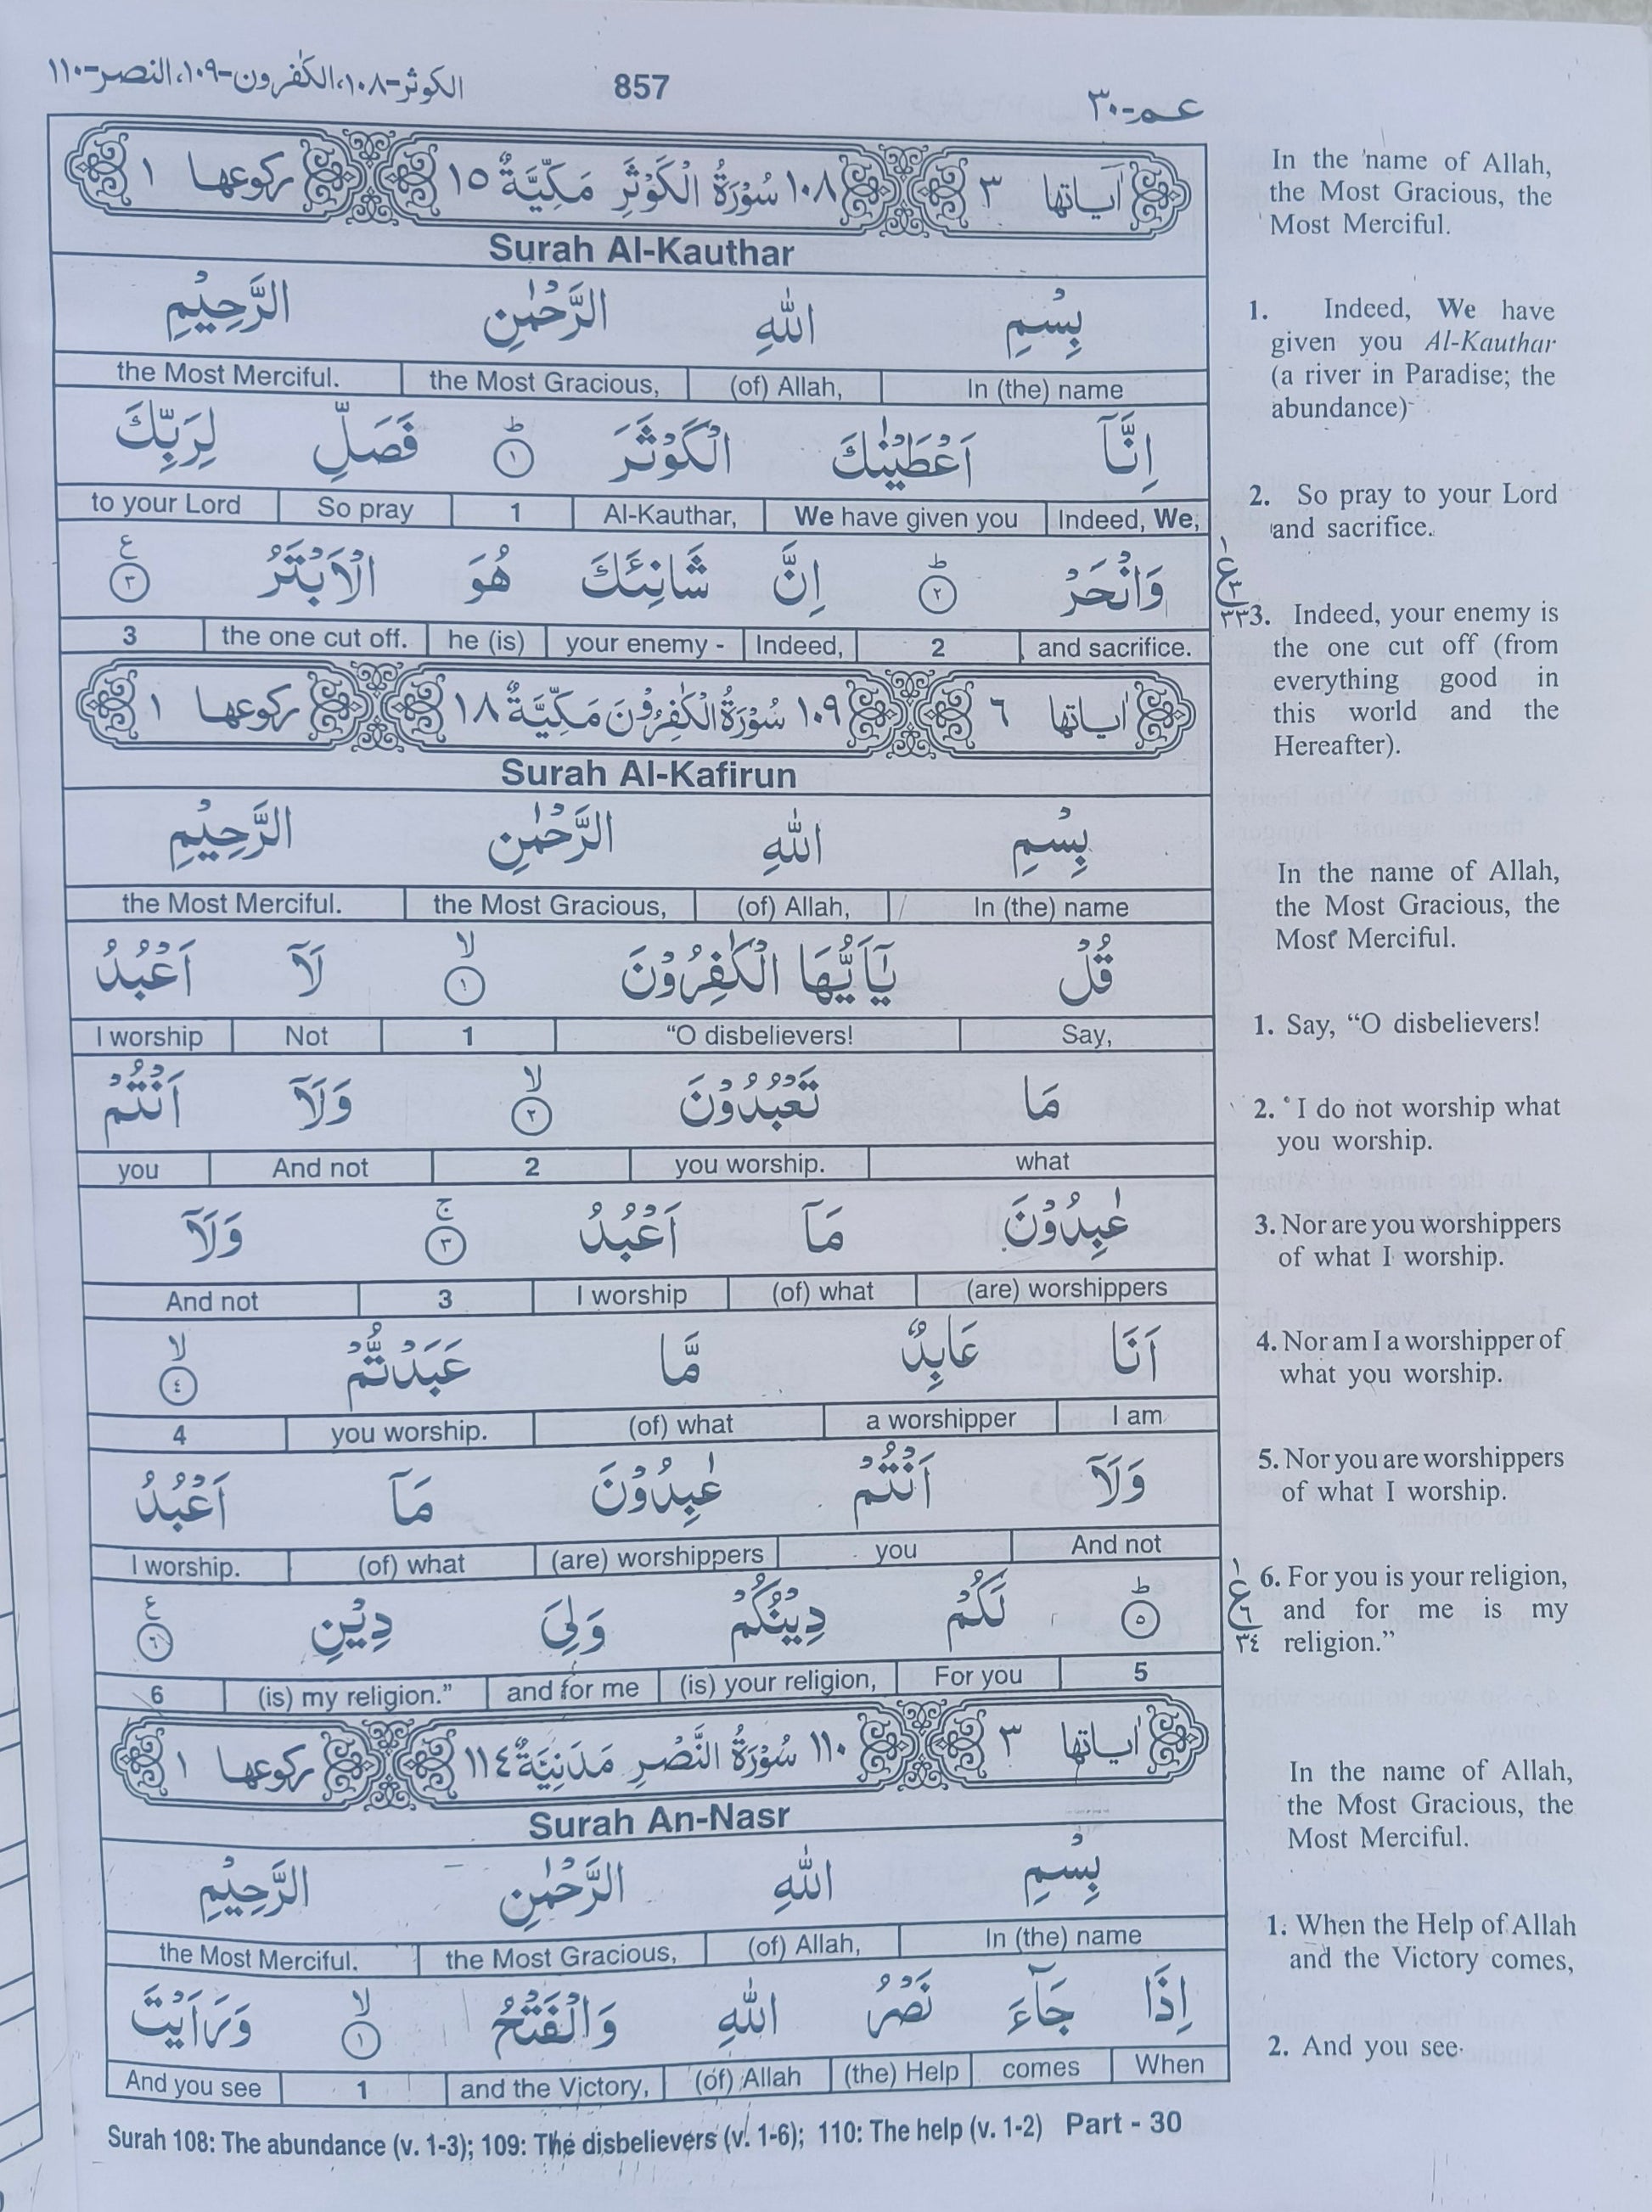 الكوثر-١٠٨،الكٰفرون-١٠٩،النصر-١١٠
857
عم-٣٠
اٰياتها ٣
١٠٨ سُوْرَةُ الْكَوْثَرِ مَكِّيَّةٌ ١٥
ركوعها ١
Surah Al-Kauthar
بِسْمِ اللّٰهِ الرَّحْمٰنِ الرَّحِيْمِ
the Most Merciful. the Most Gracious, (of) Allah, In (the) name
اِنَّآ اَعْطَيْنٰكَ الْكَوْثَرَ ؕ ١ فَصَلِّ لِرَبِّكَ
to your Lord So pray 1 Al-Kauthar, We have given you Indeed, We,
وَانْحَرْ ؕ ٢ اِنَّ شَانِئَكَ هُوَ الْاَبْتَرُ ع ٣
3 the one cut off. he (is) your enemy - Indeed, 2 and sacrifice.
اٰياتها ٦
١٠٩ سُوْرَةُ الْكٰفِرُوْنَ مَكِّيَّةٌ ١٨
ركوعها ١
Surah Al-Kafirun
بِسْمِ اللّٰهِ الرَّحْمٰنِ الرَّحِيْمِ
the Most Merciful. the Most Gracious, (of) Allah, In (the) name
قُلْ يٰٓاَيُّهَا الْكٰفِرُوْنَ ۙ ١ لَآ اَعْبُدُ
I worship Not 1 “O disbelievers! Say,
مَا تَعْبُدُوْنَ ۙ ٢ وَلَآ اَنْتُمْ
you And not 2 you worship. what
عٰبِدُوْنَ مَآ اَعْبُدُ ۚ ٣ وَلَآ
And not 3 I worship (of) what (are) worshippers
اَنَا عَابِدٌ مَّا عَبَدْتُّمْ ۙ ٤
4 you worship. (of) what a worshipper I am
وَلَآ اَنْتُمْ عٰبِدُوْنَ مَآ اَعْبُدُ
I worship. (of) what (are) worshippers you And not
ؕ ٥ لَكُمْ دِيْنُكُمْ وَلِيَ دِيْنِ ع ٦
6 (is) my religion.” and for me (is) your religion, For you 5
اٰياتها ٣
١١٠ سُوْرَةُ النَّصْرِ مَدَنِيَّةٌ ١١٤
ركوعها ١
Surah An-Nasr
بِسْمِ اللّٰهِ الرَّحْمٰنِ الرَّحِيْمِ
the Most Merciful. the Most Gracious, (of) Allah, In (the) name
اِذَا جَآءَ نَصْرُ اللّٰهِ وَالْفَتْحُ ۙ ١ وَرَاَيْتَ
And you see 1 and the Victory, (of) Allah (the) Help comes When
Surah 108: The abundance (v. 1-3); 109: The disbelievers (v. 1-6); 110: The help (v. 1-2) Part - 30
In the name of Allah,
the Most Gracious, the
Most Merciful.
1. Indeed, We have
given you Al-Kauthar
(a river in Paradise; the
abundance)
2. So pray to your Lord
and sacrifice.
١
ع
٣
٣٣
3. Indeed, your enemy is
the one cut off (from
everything good in
this world and the
Hereafter).
In the name of Allah,
the Most Gracious, the
Most Merciful.
1. Say, “O disbelievers!
2. I do not worship what
you worship.
3. Nor are you worshippers
of what I worship.
4. Nor am I a worshipper of
what you worship.
5. Nor you are worshippers
of what I worship.
١
ع
٦
٣٤
6. For you is your religion,
and for me is my
religion.”
In the name of Allah,
the Most Gracious, the
Most Merciful.
1. When the Help of Allah
and the Victory comes,
2. And you see